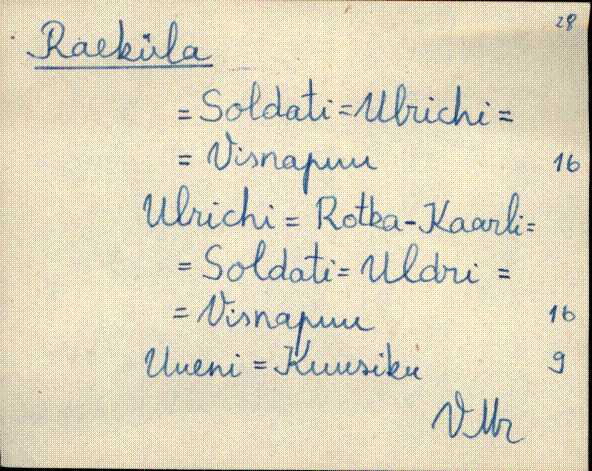 28
Raeküla
= Soldati = Ulrichi =
= Visnapuu 16
Ulrichi = Rotka-Kaarli =
= Soldati = Uldri =
= Visnapuu 16
Uueni = Kuusiku 9